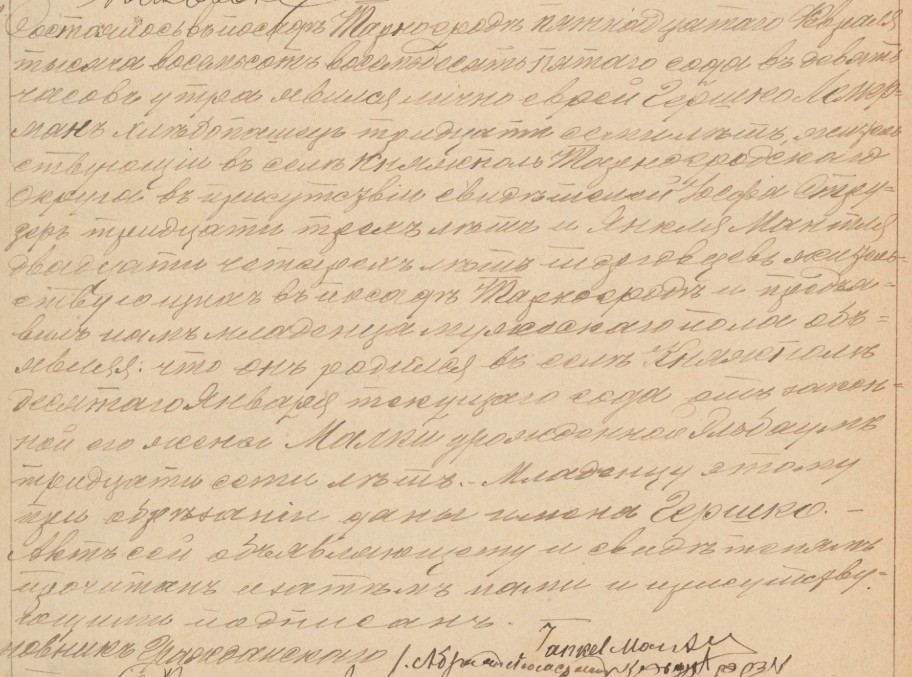 Состоялось въ посадѣ Тарногродѣ пятнадцатаго Февраля
тысяча восемьсотъ восемьдесятъ пятаго года въ девять
часовъ утра явился лично еврей Гершко Лемер-
манъ хлѣбопашецъ тридцати семи лѣтъ, житель-
ствующій въ селѣ Княжполь Тарногродскаго
округа въ присутствіи свидѣтелей Іосфа Стру-
зеръ тридцати трехъ лѣтъ и Янкля Мантля
двадцати четырехъ лѣтъ торговцевъ житель-
ствующихъ въ посадѣ Тарногродѣ и предъя-
вилъ намъ младенца мужескаго пола объ-
являя: что онъ родился въ селѣ Княжполѣ
десятаго Января текущаго года отъ закон-
ной его жены Малки урожденной
тридцати сети лѣтъ. - Младенцу этому
при обрѣзаніи даны имена Гершко. -
Актъ сей объявляющему и свидѣтелямъ
прочитанъ и затѣмъ нами и присутству-
ющими подписанъ.
новникъ Гражданскаго